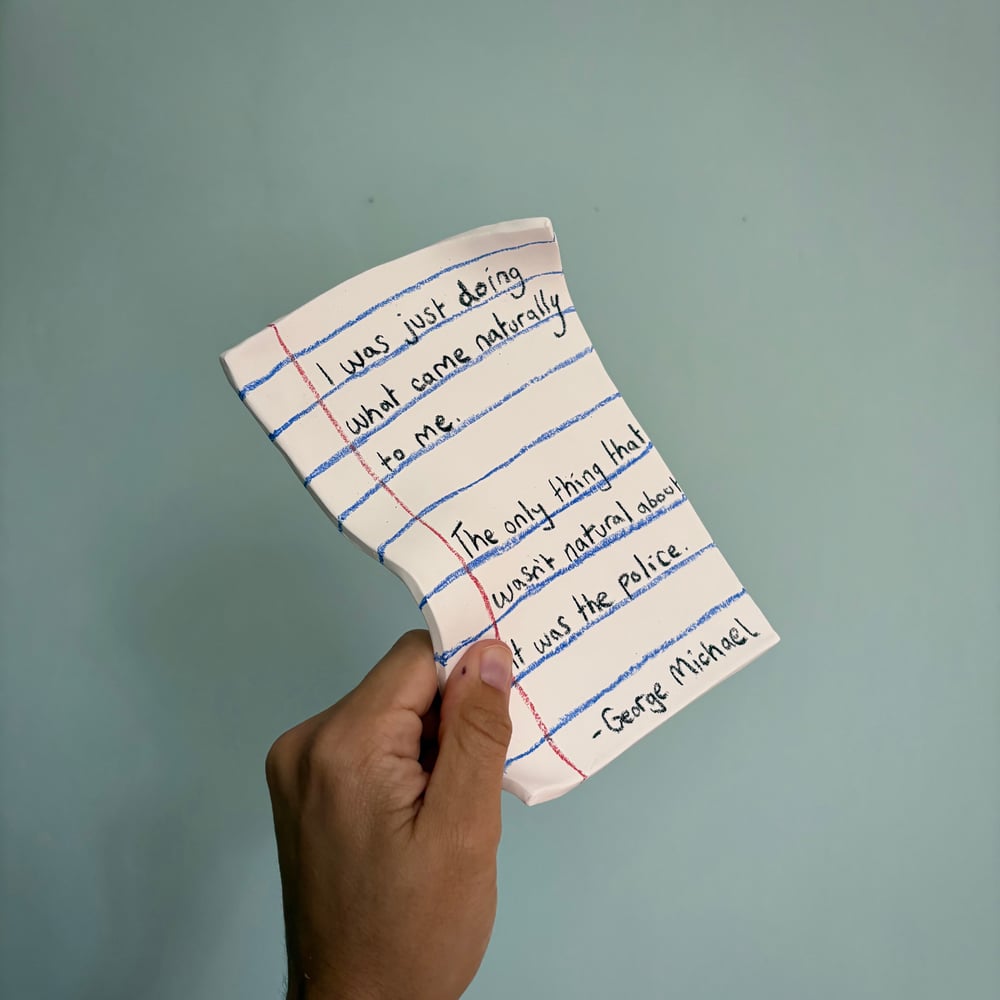 I was just doing
what came naturally
to me.
The only thing that
wasn't natural about
it was the police.
- George Michael